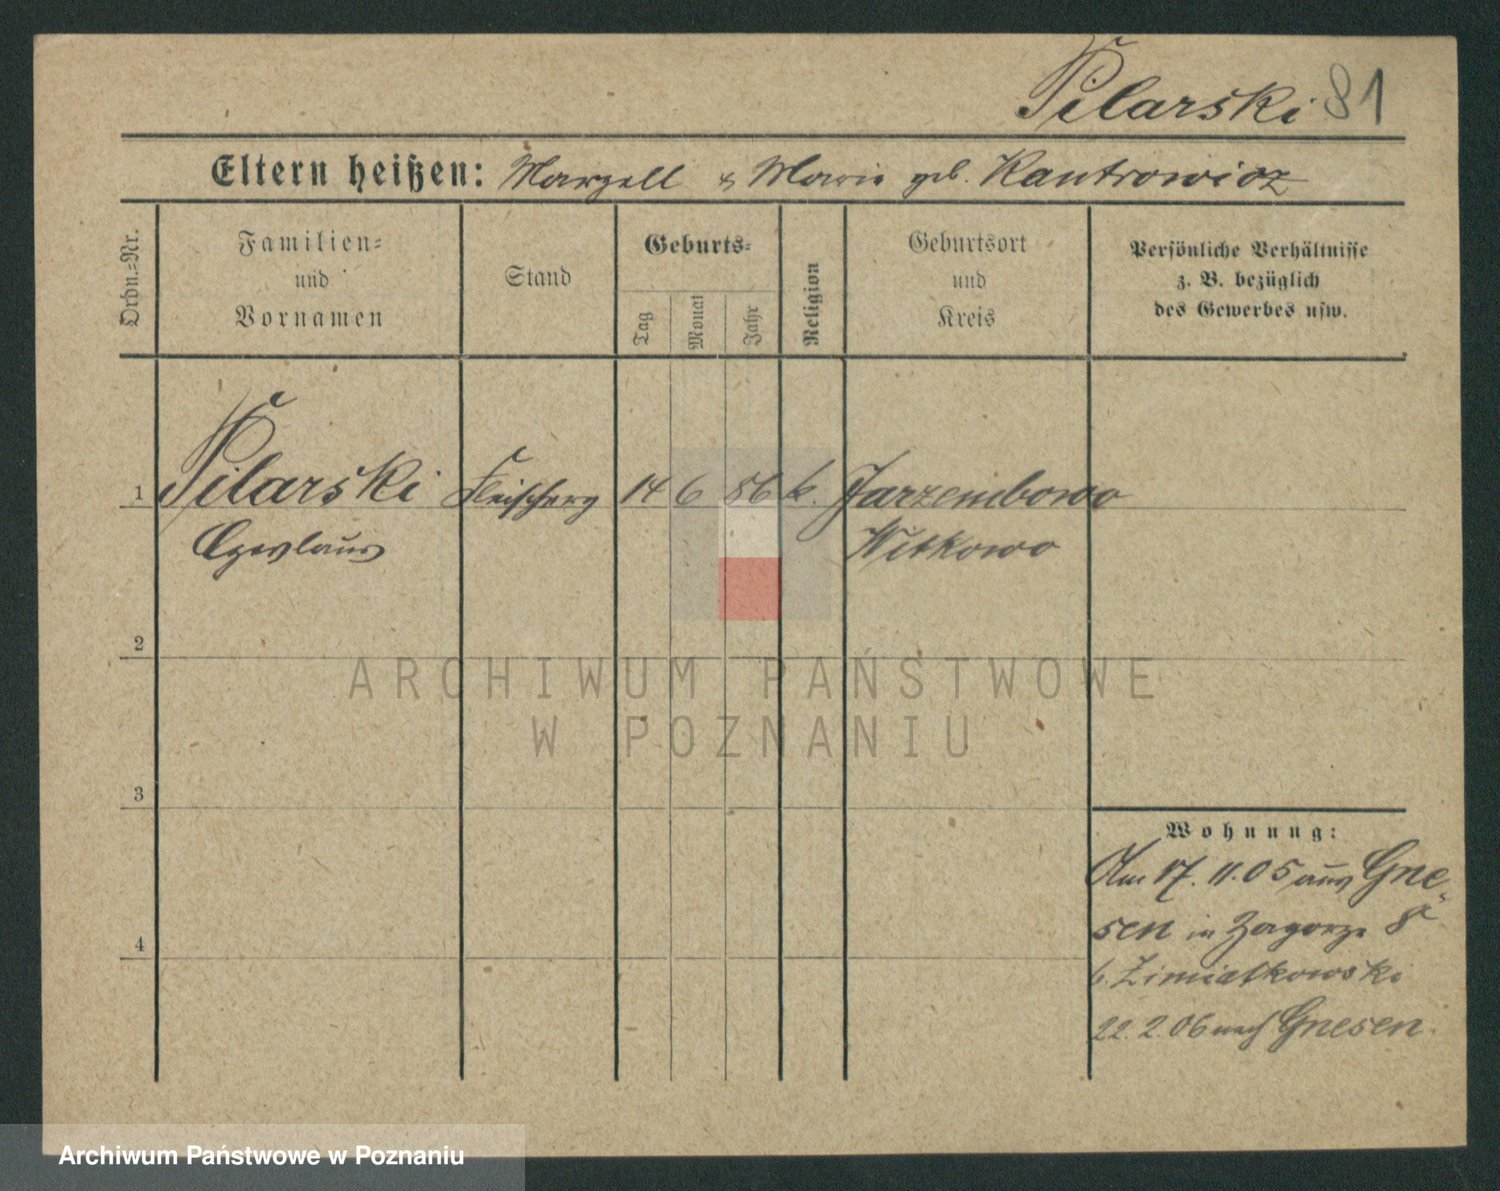 Pilarski 81
Eltern heißen: Marzell & Marie geb. Kantrowicz
Ordn.=Nr.
Familien=
und
Vornamen
Stand
Geburts=
Tag
Monat
Jahr
Religion
Geburtsort
und
Kreis
Persönliche Verhältnisse
z. B. bezüglich
des Gewerbes usw.
1 Pilarski Fleischerg 14 6 86 k. Jarzembowo
Czeslaus Witkowo
2
3
4
Wohnung:
Am 17. 11. 05 aus Gne
sen in Zagorze 8
b. Zimiatkowski
22. 2. 06 nach Gnesen.
ARCHIWUM PAŃSTWOWE
W POZNANIU
Archiwum Państwowe w Poznaniu